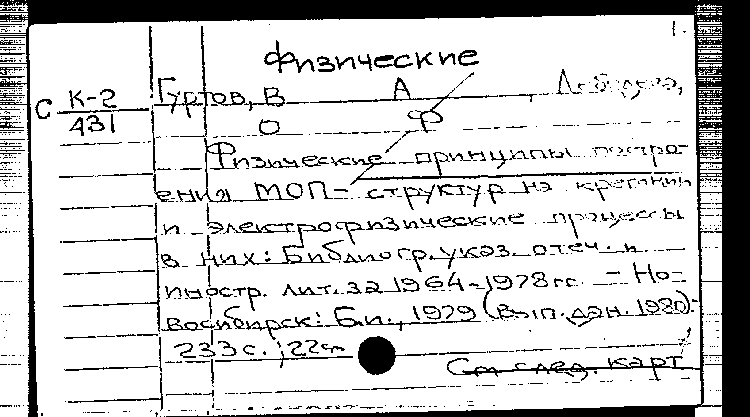 1.
Физические
С К-2 Гуртов, В А ,
431 О Ф
Физические принципы постро-
ения МОП-структур на кремнии
и электрофизические процессы
в них: Библиогр. указ. отеч. и
иностр. лит. за 1964-1978 гг. – Но-
восибирск: Б.и., 1979 (Вып. дан. 1980).
233 с.; 22 см
См след. карт